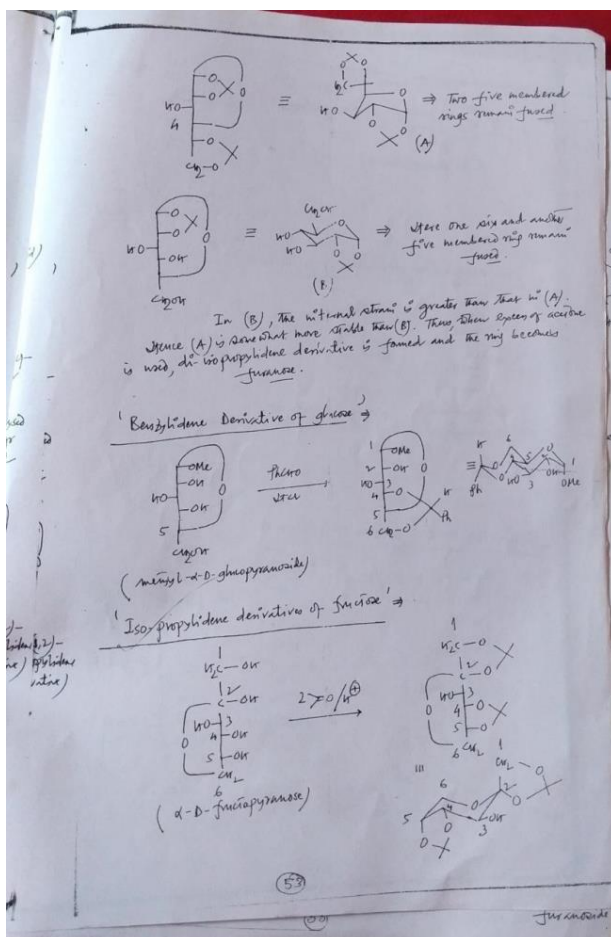 HO
4
CH2-O
≡
H2C
HO
(A)
⇒ Two five membered
rings remain fused.
HO
OH
CH2OH
≡
CH2OH
HO
HO
(B)
⇒ Here one six and another
five membered ring remain
fused.
In (B), the internal strain is greater than that in (A).
Hence (A) is somewhat more stable than (B). Thus, when excess of acetone
is used, di-isopropylidene derivative is formed and the ring becomes
furanose.
'Benzylidene Derivative of glucose' ⇒
OMe
OH
HO
OH
5
CH2OH
PhCHO
1 OMe
2 OH O
HO 3
4 O H
5 Ph
6 CH2-O
≡
H
Ph
6
5
HO
3
1
OMe
(methyl-α-D-glucopyranoside)
'Iso-propylidene derivatives of fructose' ⇒
1
H2C-OH
2
C-OH
HO 3
4 OH
O
5 OH
CH2
6
2 >=O/H⊕
1
H2C-O
2
C-O
HO 3
4 O
O
5 O
6 CH2
(α-D-fructopyranose)
1
CH2-O
6
2
O
5
4
O
3
OH
O
53
furanoside